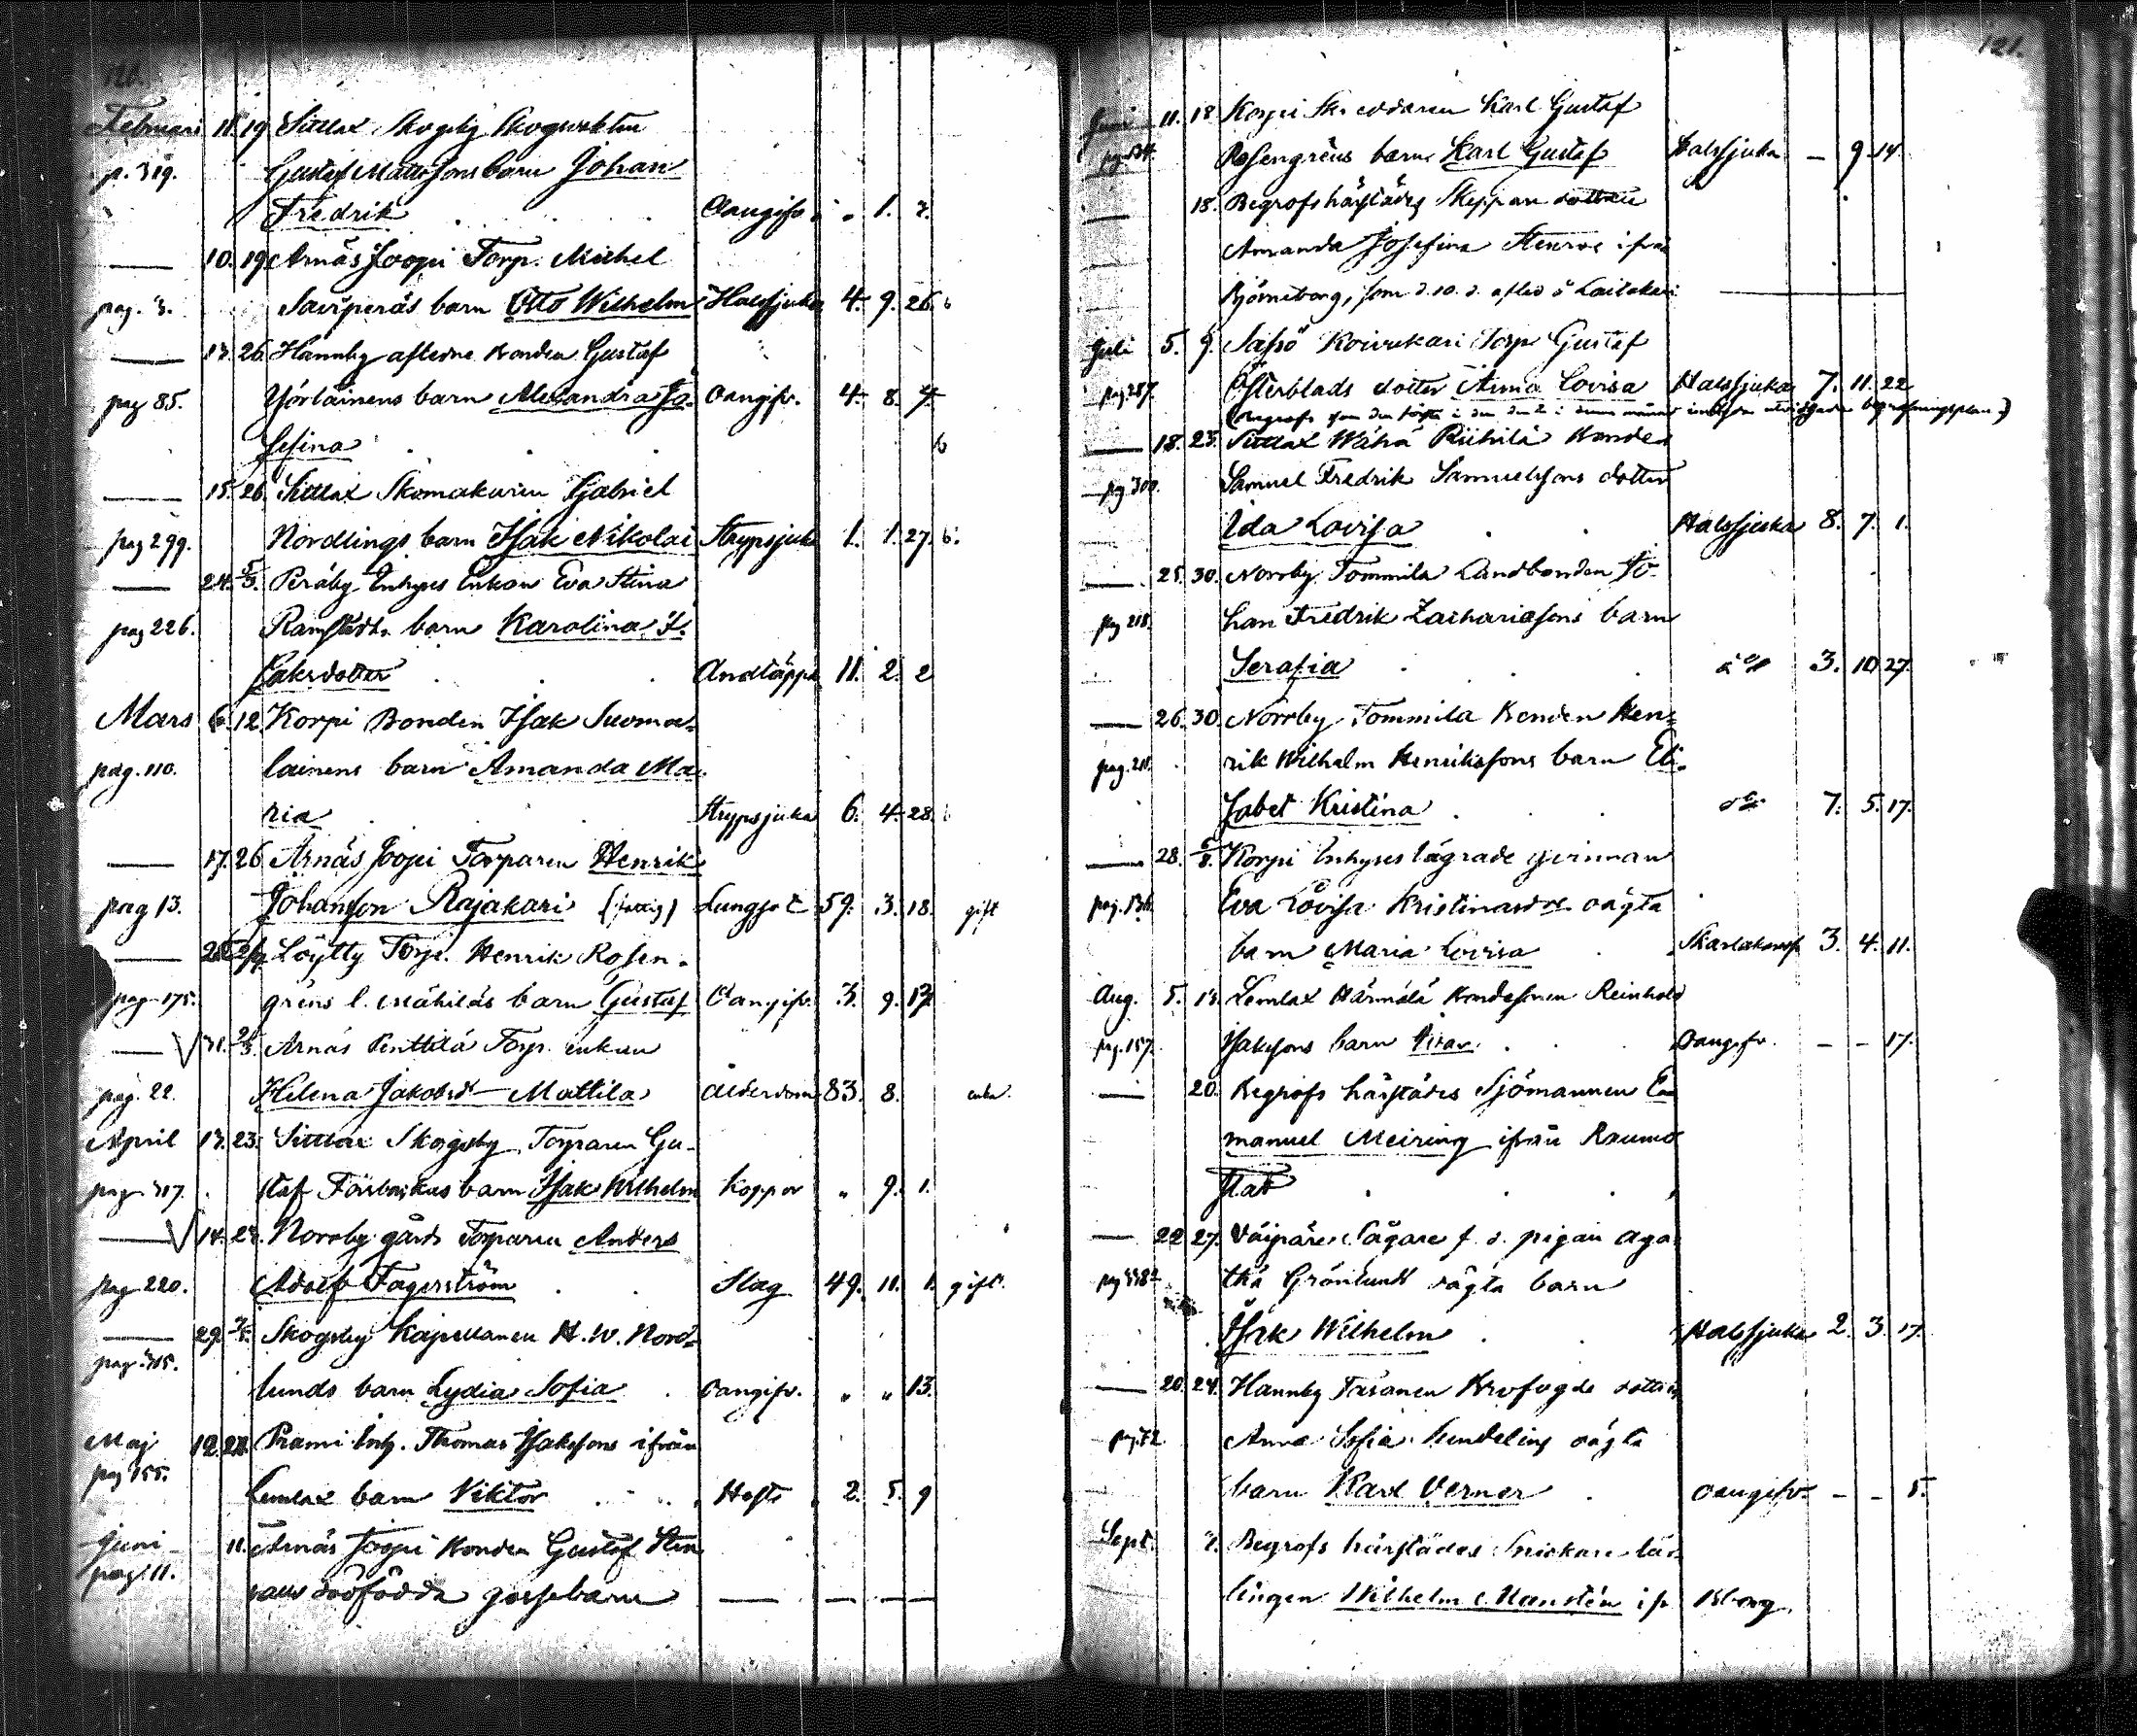 120.
Februari 11. 19. Sittlax Skogsby Skogvaktm
p. 319. Gustaf Mattssons barn Johan
Fredrik Oangifv. „ 1. 2.
— 10. 19. Arnäs Joopi Torp. Michel
pag. 3. barn Otto Wilhelm Halssjuka 4. 9. 26.
— 13. 26. Hannby afledne Bonden Gustaf
pag 85. Yörläinens barn Alexandra Jo- Oangifv. 4. 8. 4.
sefina
— 15. 26. Sittlax Skomakaren Gabriel
pag 299. Nordlings barn Isak Nikolai Strypsjuka 1. 1. 27.
— 24. 5/3. Peräby Inhyses Enkan Eva Stina
pag 226. Ramstedts barn Karolina I-
saksdotter Andtäppa 11. 2. 2
Mars 6. 12. Korpi Bonden Isak Suoma-
pag. 110. lainens barn Amanda Ma-
ria Strypsjuka 6. 4. 28.
— 17. 26 Arnäs Joopi Torparen Henrik
pag 13. Johansson Rajakari (fattig) Lungsot 59. 3. 18. gift
— Löytty Torp. Henrik Rosen-
pag 175. gréns l. Mähiläs barn Gustaf Oangifv. 3. 9. 17.
— 31. Arnäs Penttilä Torp. enkan
pag. 22. Helena Jakobsd. Mattila Ålderdom 83. 8. enka.
April 13. 23. Sittlax Skogsby Torparen Gu-
pag 317. staf barn Isak Wilhelm Koppor „ 9. 1.
— 14. 23. Norrby gårds Torparen Anders
pag 220. Adolf Fagerström Slag 49. 11. 1. gift.
— 29. Skogsby Kapellanen H. W. Nord-
pag. 315.
lunds barn Lydia Sofia Oangifv. „ „ 13.
Maj 12. 22. Prami Inh. Thomas Isakssons ifrån
pag 155.
Lemlax barn Viktor Hosta 2. 5. 9
Juni 11. Arnäs Joopi Bonden Gustaf Sten
pag. 11.
dödfödda gossebarn — — — —
121.
Juni 11. 18. Korpi Skreddaren Karl Gustaf
Rosengréns barn Karl Gustaf Halssjuka — 9. 14.
— 18. Begrofs härstädes Skeppare dottern
Amanda Josefina Stenroos ifrån
Björneborg, som d. 10. d. afled å Laitakari
Juli 5. 9. Saksö Koivukari Torp Gustaf
pag. 287. Österblads dotter Anna Lovisa Halssjuka 7. 11. 22
— 18. 23. Sittlax Wähä Riihilä Bonden
pag 300. Samuel Fredrik Samuelssons dotter
Ida Lovisa Halssjuka 8. 7. 1.
— 25. 30. Norrby Tommila Landbonden Jo-
pag 218. han Fredrik Zachariassons barn
Serafia 3. 10. 27.
— 26. 30. Norrby Tommila Bonden Hen-
pag. 211. rik Wilhelm Henrikssons barn Eli-
sabet Kristina 7. 5. 17.
— 28. Korpi Inhyses lägrade qvinnan
pag. 136. Eva Lovisa Kristinasd:r oägta
barn Maria Lovisa 3. 4. 11.
Aug. 5. 13. Lemlax Härmälä Bondesonen Reinhold
pag. 157. Isakssons barn Oangifv. — — 17.
— 20. Begrofs härstädes Sjömannen Em
manuel Meiring ifrån Raumo
stad
— 22. 27. f. d. pigan Aga-
tha Grönlunds oägta barn
Isak Wilhelm Halssjuka 2. 3. 17.
— 20. 24. Hannby Tasanen Krofogde dottern
pag. 72 Anna Sofia oägta
barn Karl Verner Oangifv. — — 5.
Sept. Begrofs härstädes Snickare lär-
lingen Wilhelm ifr Bborg.